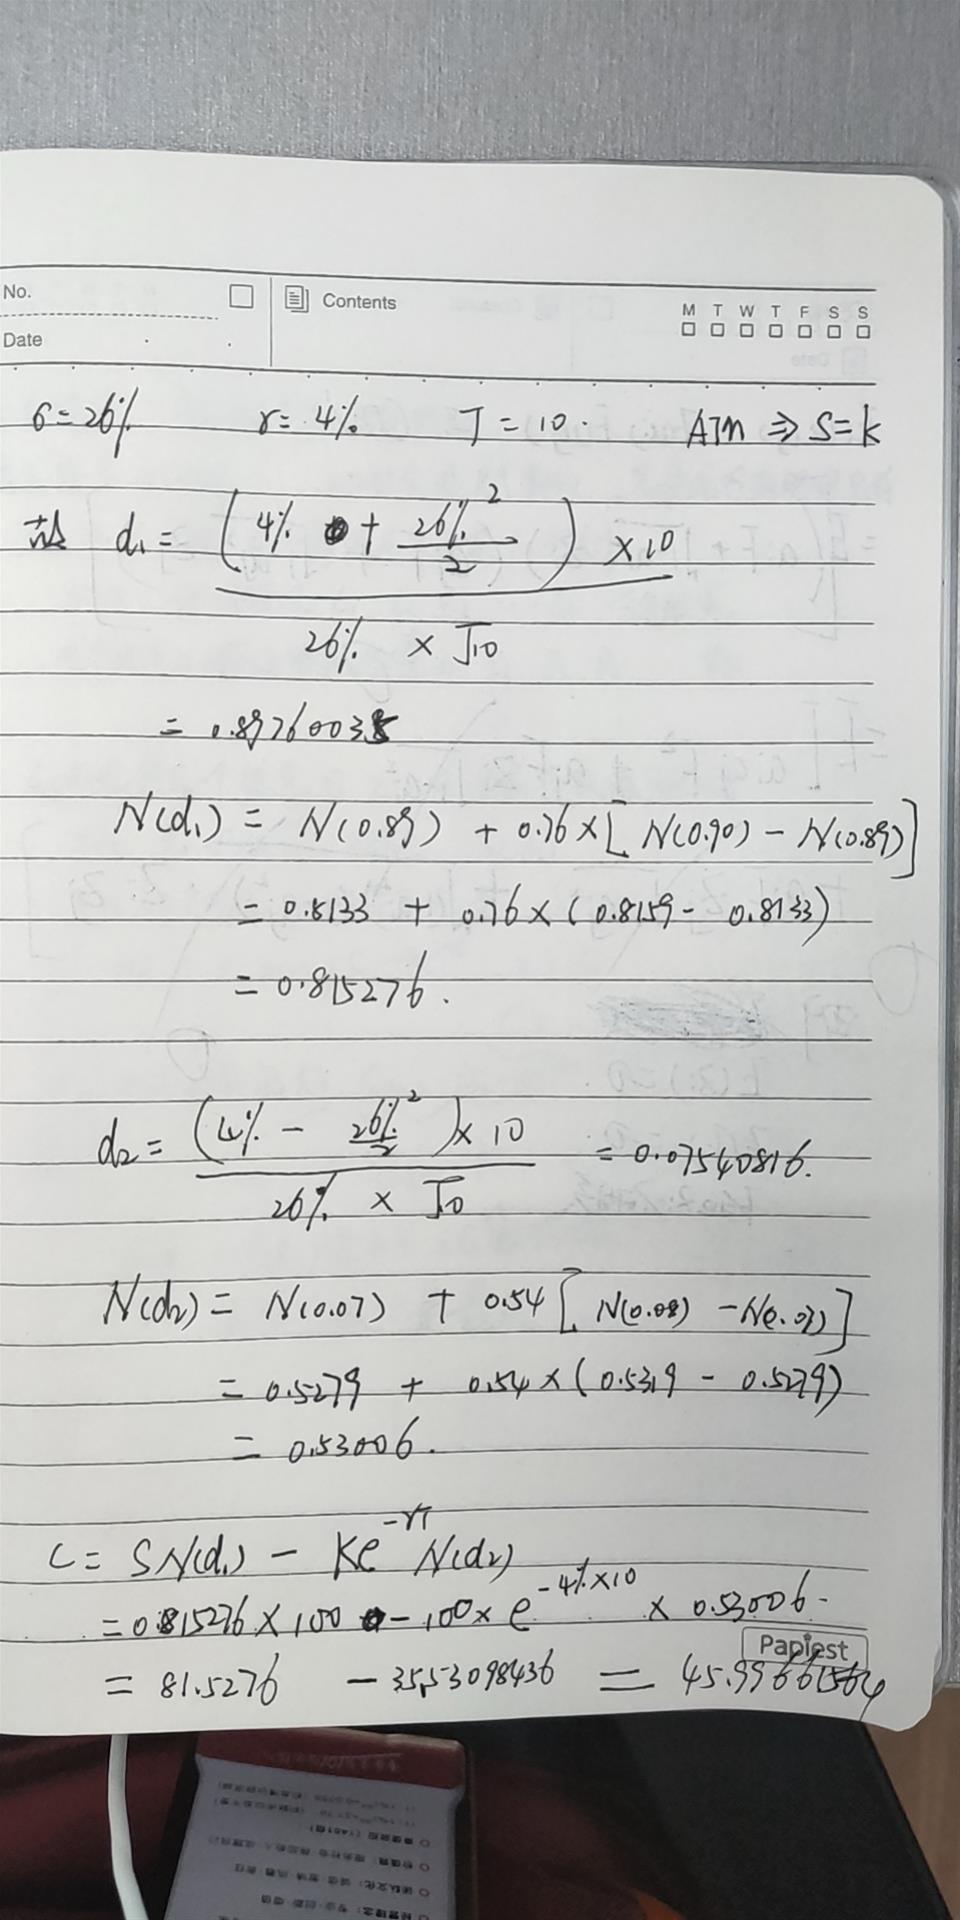 No.
Date
Contents
M T W T F S S
σ=26% r=4% T=10. ATM ⇒ S=k
故 d₁ = (4% + 26%²/2) ×10 / 26% × √10
= 0.897600385
N(d₁) = N(0.89) + 0.76×[N(0.90) - N(0.89)]
= 0.8133 + 0.76×(0.8159 - 0.8133)
= 0.815276.
d₂ = (4% - 26%²/2)×10 / 26% × √10 = 0.07540816.
N(d₂) = N(0.07) + 0.54[N(0.08) - N(0.07)]
= 0.5279 + 0.54×(0.5319 - 0.5279)
= 0.53006.
C = SN(d₁) - Ke^-rT N(d₂)
= 0.815276×100 - 100×e^-4%×10 × 0.53006.
= 81.5276 - 35.53098436 = 45.99661564
Papiest